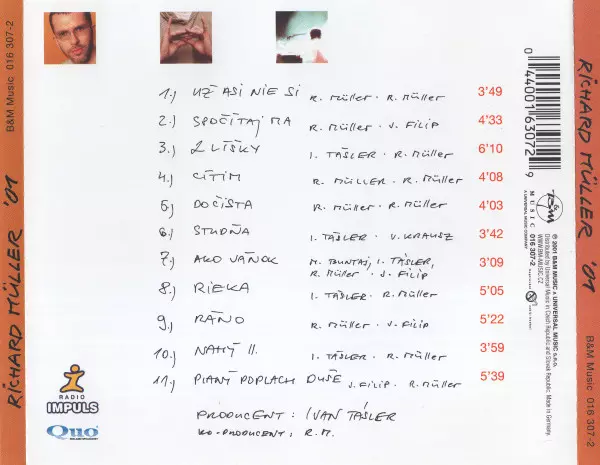 B&M Music 016 307-2
RICHARD MÜLLER '01
1.) UŽ ASI NIE SI R. MÜLLER · R. MÜLLER 3'49
2.) SPOČÍTAJ MA R. MÜLLER · J. FILIP 4'33
3.) 2 LÍŠKY I. TÁSLER · R. MÜLLER 6'10
4.) CÍTIM R. MÜLLER · R. MÜLLER 4'08
5.) DOČISTA R. MÜLLER · R. MÜLLER 4'03
6.) STUDŇA I. TÁSLER · V. KRAUSZ 3'42
7.) AKO VÁNOK M. BUNTAJ, I. TÁSLER,
R. MÜLLER · J. FILIP 3'09
8.) RIEKA I. TÁSLER · R. MÜLLER 5'05
9.) RÁNO R. MÜLLER · J. FILIP 5'22
10.) NAHÝ II. I. TÁSLER · R. MÜLLER 3'59
11.) PIANÝ POPLACH DUŠE J. FILIP · R. MÜLLER 5'39
PRODUCENT: IVAN TÁSLER
KO-PRODUCENT: R.M.
RADIO
IMPULS
Quo
0 44001 63072 9
B&M
MUSIC
A UNIVERSAL MUSIC COMPANY
016 307-2
℗ © 2001 B&M MUSIC & UNIVERSAL MUSIC s.r.o.
WWW.BM-MUSIC.CZ
Distributed by Universal Music in Czech Republic and Slovak Republic. Made in Germany.
RICHARD MÜLLER '01
B&M Music 016 307-2